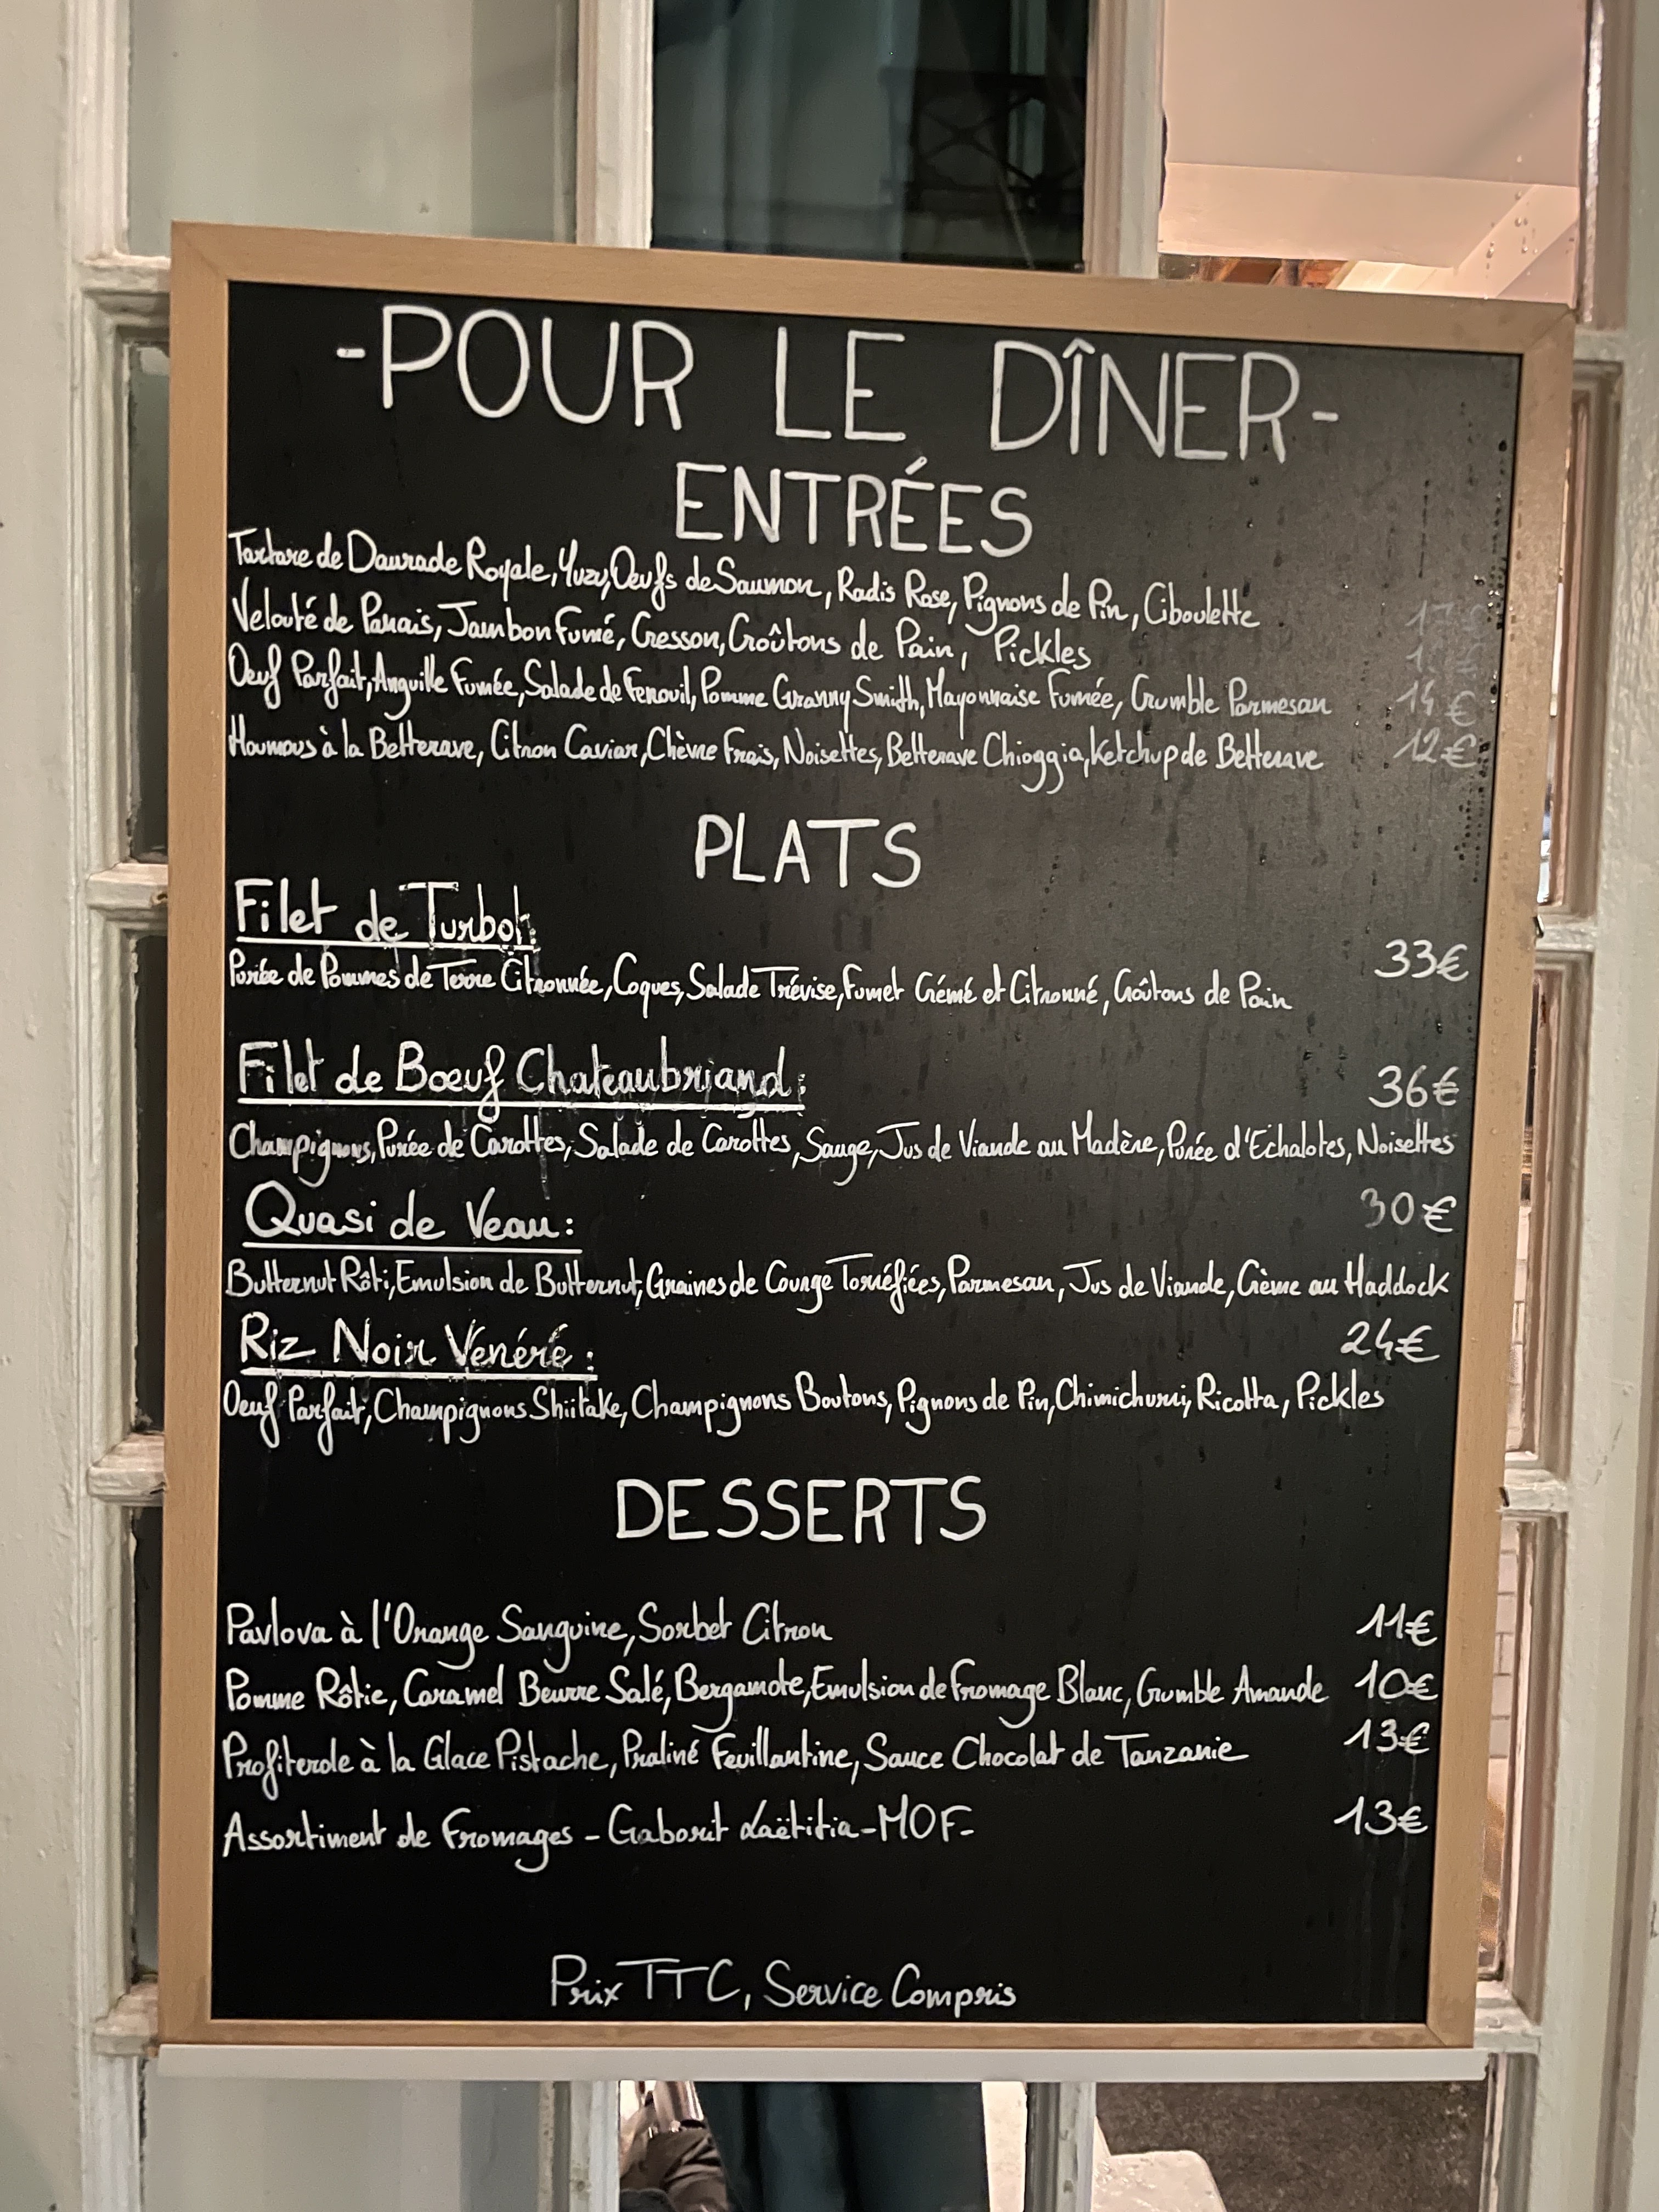 -POUR LE DÎNER-
ENTRÉES
Tartare de Daurade Royale, Yuzu, Oeufs de Saumon, Radis Rose, Pignons de Pin, Ciboulette
Velouté de Panais, Jambon Fumé, Cresson, Croûtons de Pain, Pickles
Oeuf Parfait, Anguille Fumée, Salade de Fenouil, Pomme Granny Smith, Mayonnaise Fumée, Crumble Parmesan 14€
Houmous à la Betterave, Citron Caviar, Chèvre Frais, Noisettes, Betterave Chioggia, Ketchup de Betterave 12€
PLATS
Filet de Turbot: 33€
Purée de Pommes de Terre Citronnée, Coques, Salade Trévise, Fumet Crémé et Citronné, Croûtons de Pain
Filet de Bœuf Chateaubriand: 36€
Champignons, Purée de Carottes, Salade de Carottes, Sauge, Jus de Viande au Madère, Purée d'Echalotes, Noisettes
Quasi de Veau: 30€
Butternut Rôti, Emulsion de Butternut, Graines de Courge Torréfiées, Parmesan, Jus de Viande, Crème au Haddock
Riz Noir Vénéré: 24€
Oeuf Parfait, Champignons Shiitake, Champignons Boutons, Pignons de Pin, Chimichurri, Ricotta, Pickles
DESSERTS
Pavlova à l'Orange Sanguine, Sorbet Citron 11€
Pomme Rôtie, Caramel Beurre Salé, Bergamote, Emulsion de Fromage Blanc, Crumble Amande 10€
Profiterole à la Glace Pistache, Praliné Feuillantine, Sauce Chocolat de Tanzanie 13€
Assortiment de Fromages - Gaborit Laëtitia - MOF- 13€
Prix TTC, Service Compris